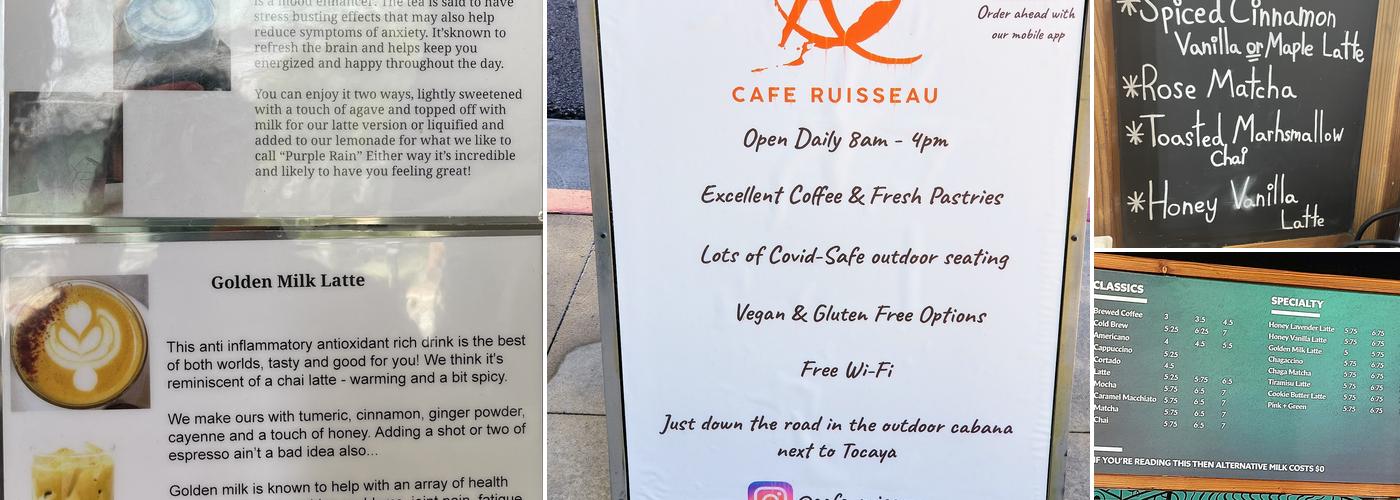 is a mood enhancer. The tea is said to have
stress busting effects that may also help
reduce symptoms of anxiety. It'sknown to
refresh the brain and helps keep you
energized and happy throughout the day.
You can enjoy it two ways, lightly sweetened
with a touch of agave and topped off with
milk for our latte version or liquified and
added to our lemonade for what we like to
call “Purple Rain” Either way it’s incredible
and likely to have you feeling great!
Golden Milk Latte
This anti inflammatory antioxidant rich drink is the best
of both worlds, tasty and good for you! We think it's
reminiscent of a chai latte - warming and a bit spicy.
We make ours with tumeric, cinnamon, ginger powder,
cayenne and a touch of honey. Adding a shot or two of
espresso ain't a bad idea also...
Golden milk is known to help with an array of health
joint pain, fatigue
Order ahead with
our mobile app
CAFE RUISSEAU
Open Daily 8am - 4pm
Excellent Coffee & Fresh Pastries
Lots of Covid-Safe outdoor seating
Vegan & Gluten Free Options
Free Wi-Fi
Just down the road in the outdoor cabana
next to Tocaya
*Spiced Cinnamon
Vanilla or Maple Latte
*Rose Matcha
*Toasted Marhsmallow
Chai
*Honey Vanilla
Latte
CLASSICS
Brewed Coffee 3 3.5 4.5
Cold Brew 5.25 6.25 7
Americano 4 4.5 5.5
Cappuccino 5.25
Cortado 4.5
Latte 5.25 5.75 6.5
Mocha 5.75 6.5 7
Caramel Macchiato 5.75 6.5 7
Matcha 5.75 6.5 7
Chai 5.75 6.5 7
SPECIALTY
Honey Lavender Latte 5.75 6.75
Honey Vanilla Latte 5.75 6.75
Golden Milk Latte 5 5.75
Chagaccino 5.75 6.75
Chaga Matcha 5.75 6.75
Tiramisu Latte 5.75 6.75
Cookie Butter Latte 5.75 6.75
Pink + Green 5.75 6.75
IF YOU'RE READING THIS THEN ALTERNATIVE MILK COSTS $0